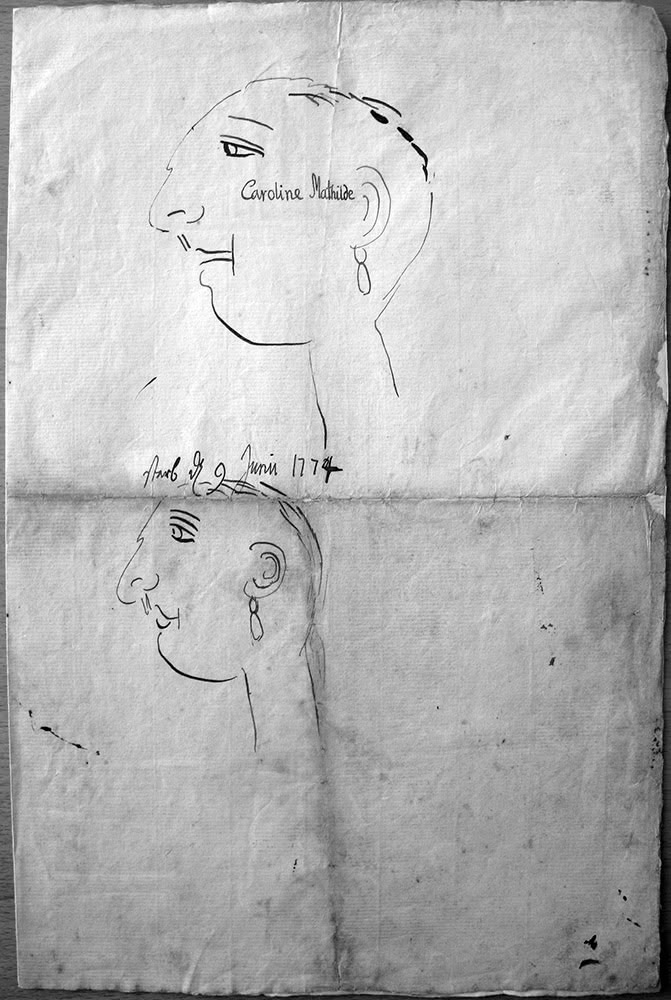 Caroline Mathilde
starb d. 9 Junii 1774